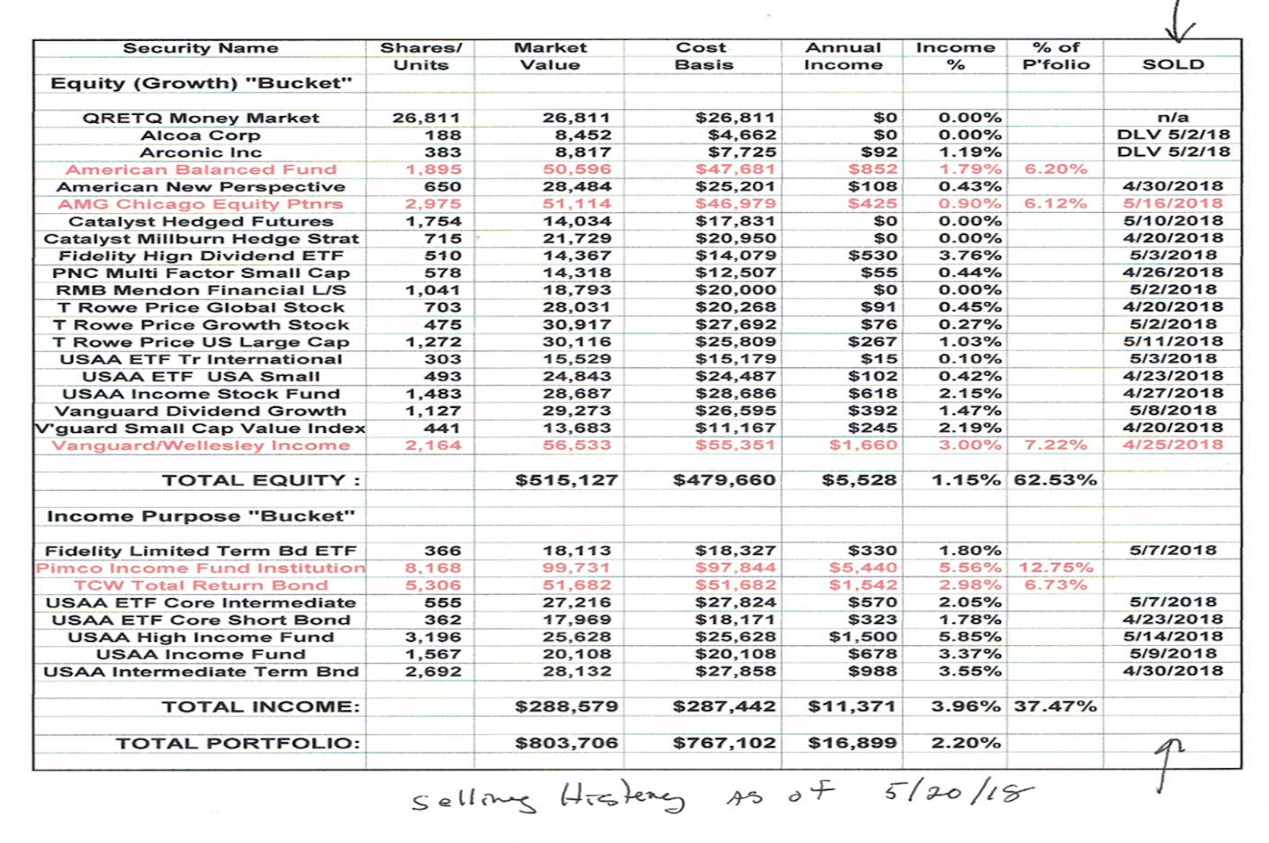 Security Name Shares/ Market Cost Annual Income % of
Units Value Basis Income % P'folio SOLD
Equity (Growth) "Bucket"
QRETQ Money Market 26,811 26,811 $26,811 $0 0.00% n/a
Alcoa Corp 188 8,452 $4,662 $0 0.00% DLV 5/2/18
Arconic Inc 383 8,817 $7,725 $92 1.19% DLV 5/2/18
American Balanced Fund 1,895 50,596 $47,681 $852 1.79% 6.20%
American New Perspective 650 28,484 $25,201 $108 0.43% 4/30/2018
AMG Chicago Equity Ptnrs 2,975 51,114 $46,979 $425 0.90% 6.12% 5/16/2018
Catalyst Hedged Futures 1,754 14,034 $17,831 $0 0.00% 5/10/2018
Catalyst Millburn Hedge Strat 715 21,729 $20,950 $0 0.00% 4/20/2018
Fidelity Hign Dividend ETF 510 14,367 $14,079 $530 3.76% 5/3/2018
PNC Multi Factor Small Cap 578 14,318 $12,507 $55 0.44% 4/26/2018
RMB Mendon Financial L/S 1,041 18,793 $20,000 $0 0.00% 5/2/2018
T Rowe Price Global Stock 703 28,031 $20,268 $91 0.45% 4/20/2018
T Rowe Price Growth Stock 475 30,917 $27,692 $76 0.27% 5/2/2018
T Rowe Price US Large Cap 1,272 30,116 $25,809 $267 1.03% 5/11/2018
USAA ETF Tr International 303 15,529 $15,179 $15 0.10% 5/3/2018
USAA ETF USA Small 493 24,843 $24,487 $102 0.42% 4/23/2018
USAA Income Stock Fund 1,483 28,687 $28,686 $618 2.15% 4/27/2018
Vanguard Dividend Growth 1,127 29,273 $26,595 $392 1.47% 5/8/2018
V'guard Small Cap Value Index 441 13,683 $11,167 $245 2.19% 4/20/2018
Vanguard/Wellesley Income 2,164 56,533 $55,351 $1,660 3.00% 7.22% 4/25/2018
TOTAL EQUITY : $515,127 $479,660 $5,528 1.15% 62.53%
Income Purpose "Bucket"
Fidelity Limited Term Bd ETF 366 18,113 $18,327 $330 1.80% 5/7/2018
Pimco Income Fund Institution 8,168 99,731 $97,844 $5,440 5.56% 12.75%
TCW Total Return Bond 5,306 51,682 $51,682 $1,542 2.98% 6.73%
USAA ETF Core Intermediate 555 27,216 $27,824 $570 2.05% 5/7/2018
USAA ETF Core Short Bond 362 17,969 $18,171 $323 1.78% 4/23/2018
USAA High Income Fund 3,196 25,628 $25,628 $1,500 5.85% 5/14/2018
USAA Income Fund 1,567 20,108 $20,108 $678 3.37% 5/9/2018
USAA Intermediate Term Bnd 2,692 28,132 $27,858 $988 3.55% 4/30/2018
TOTAL INCOME: $288,579 $287,442 $11,371 3.96% 37.47%
TOTAL PORTFOLIO: $803,706 $767,102 $16,899 2.20%
Selling History As of 5/20/18